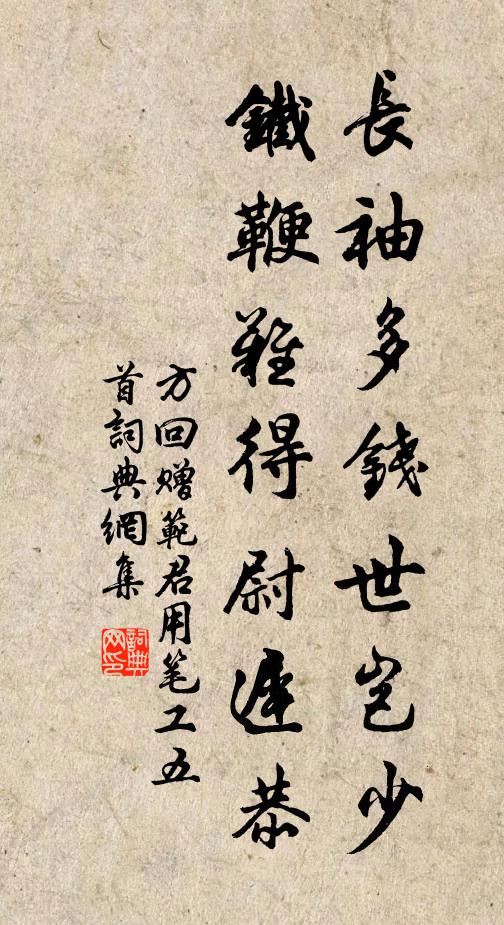 長袖多錢世豈少
鐵鞭難得尉遲恭
方回贈範君用笔工五
首詞典網集
詞典网印